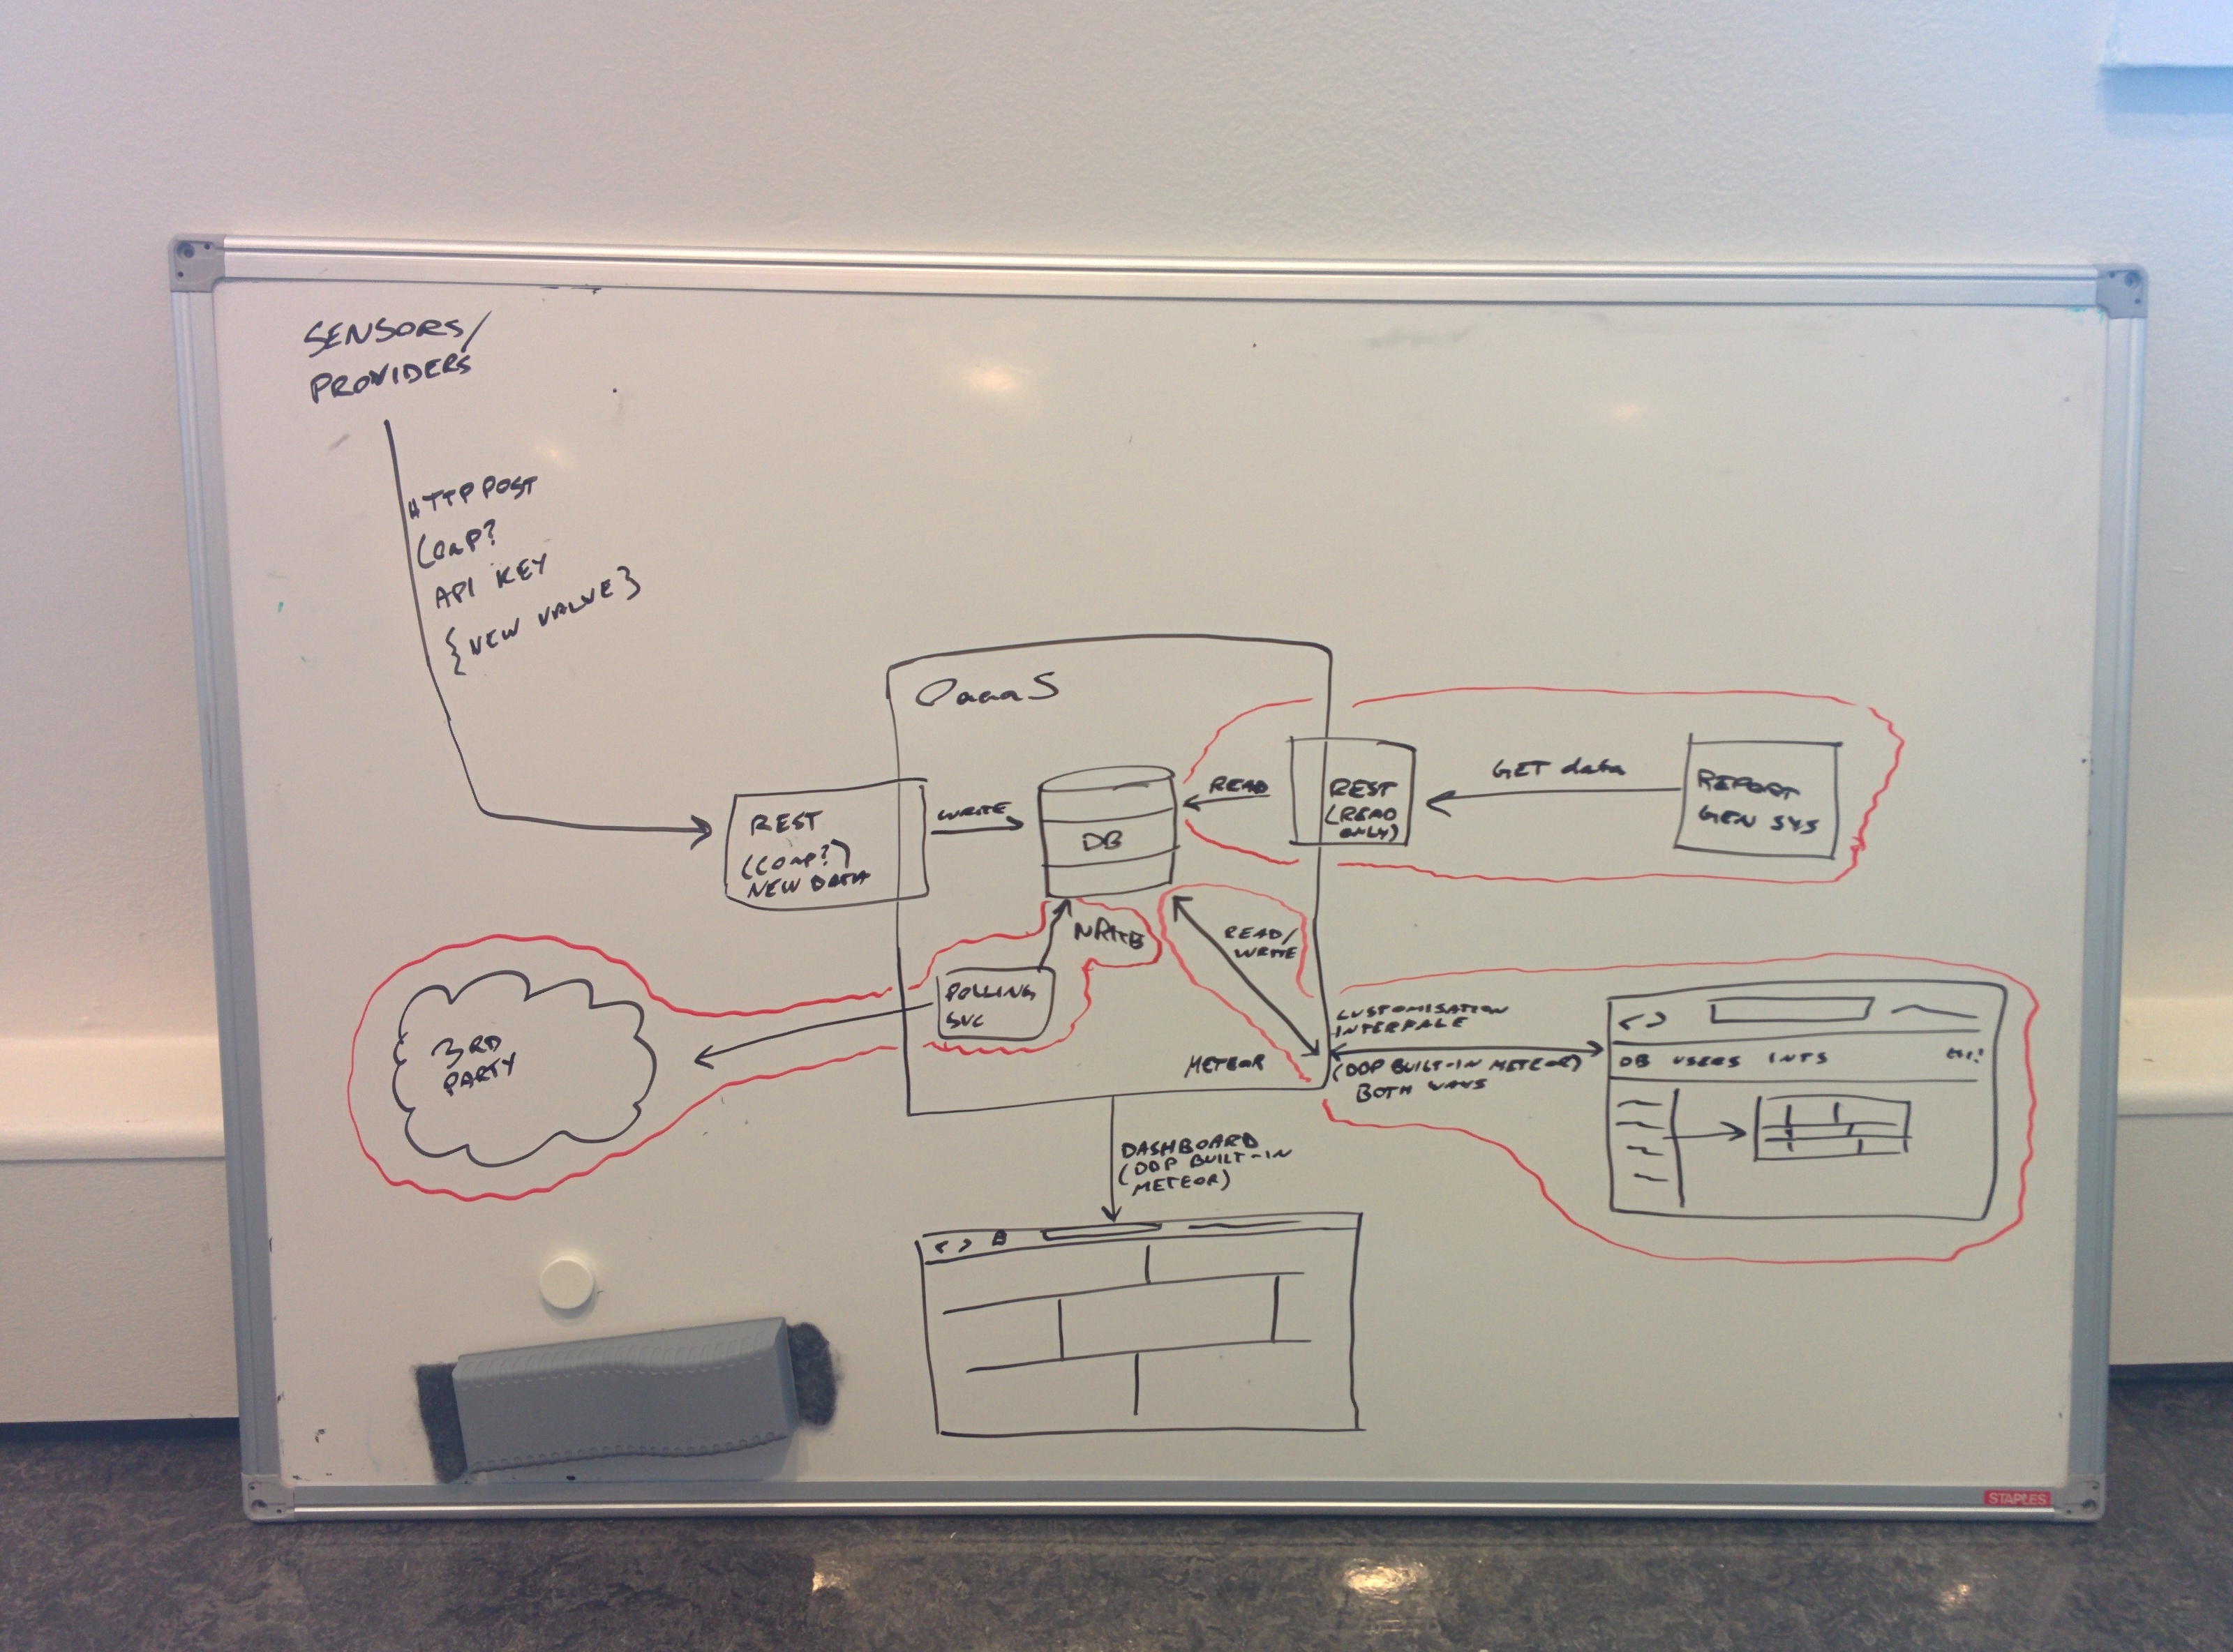 SENSORS/
PROVIDERS
HTTP POST
COAP?
API KEY
{NEW VALUE}
REST
(COAP?)
NEW DATA
WRITE
DB
READ
REST
(READ
ONLY)
GET data
REPORT
GEN SYS
WRITE
POLLING
SVC
3RD
PARTY
READ/
WRITE
METEOR
CUSTOMISATION
INTERFACE
(DDP BUILT-IN METEOR)
BOTH WAYS
< >
DB USERS INTS
DASHBOARD
(DDP BUILT-IN
METEOR)
< >
STAPLES